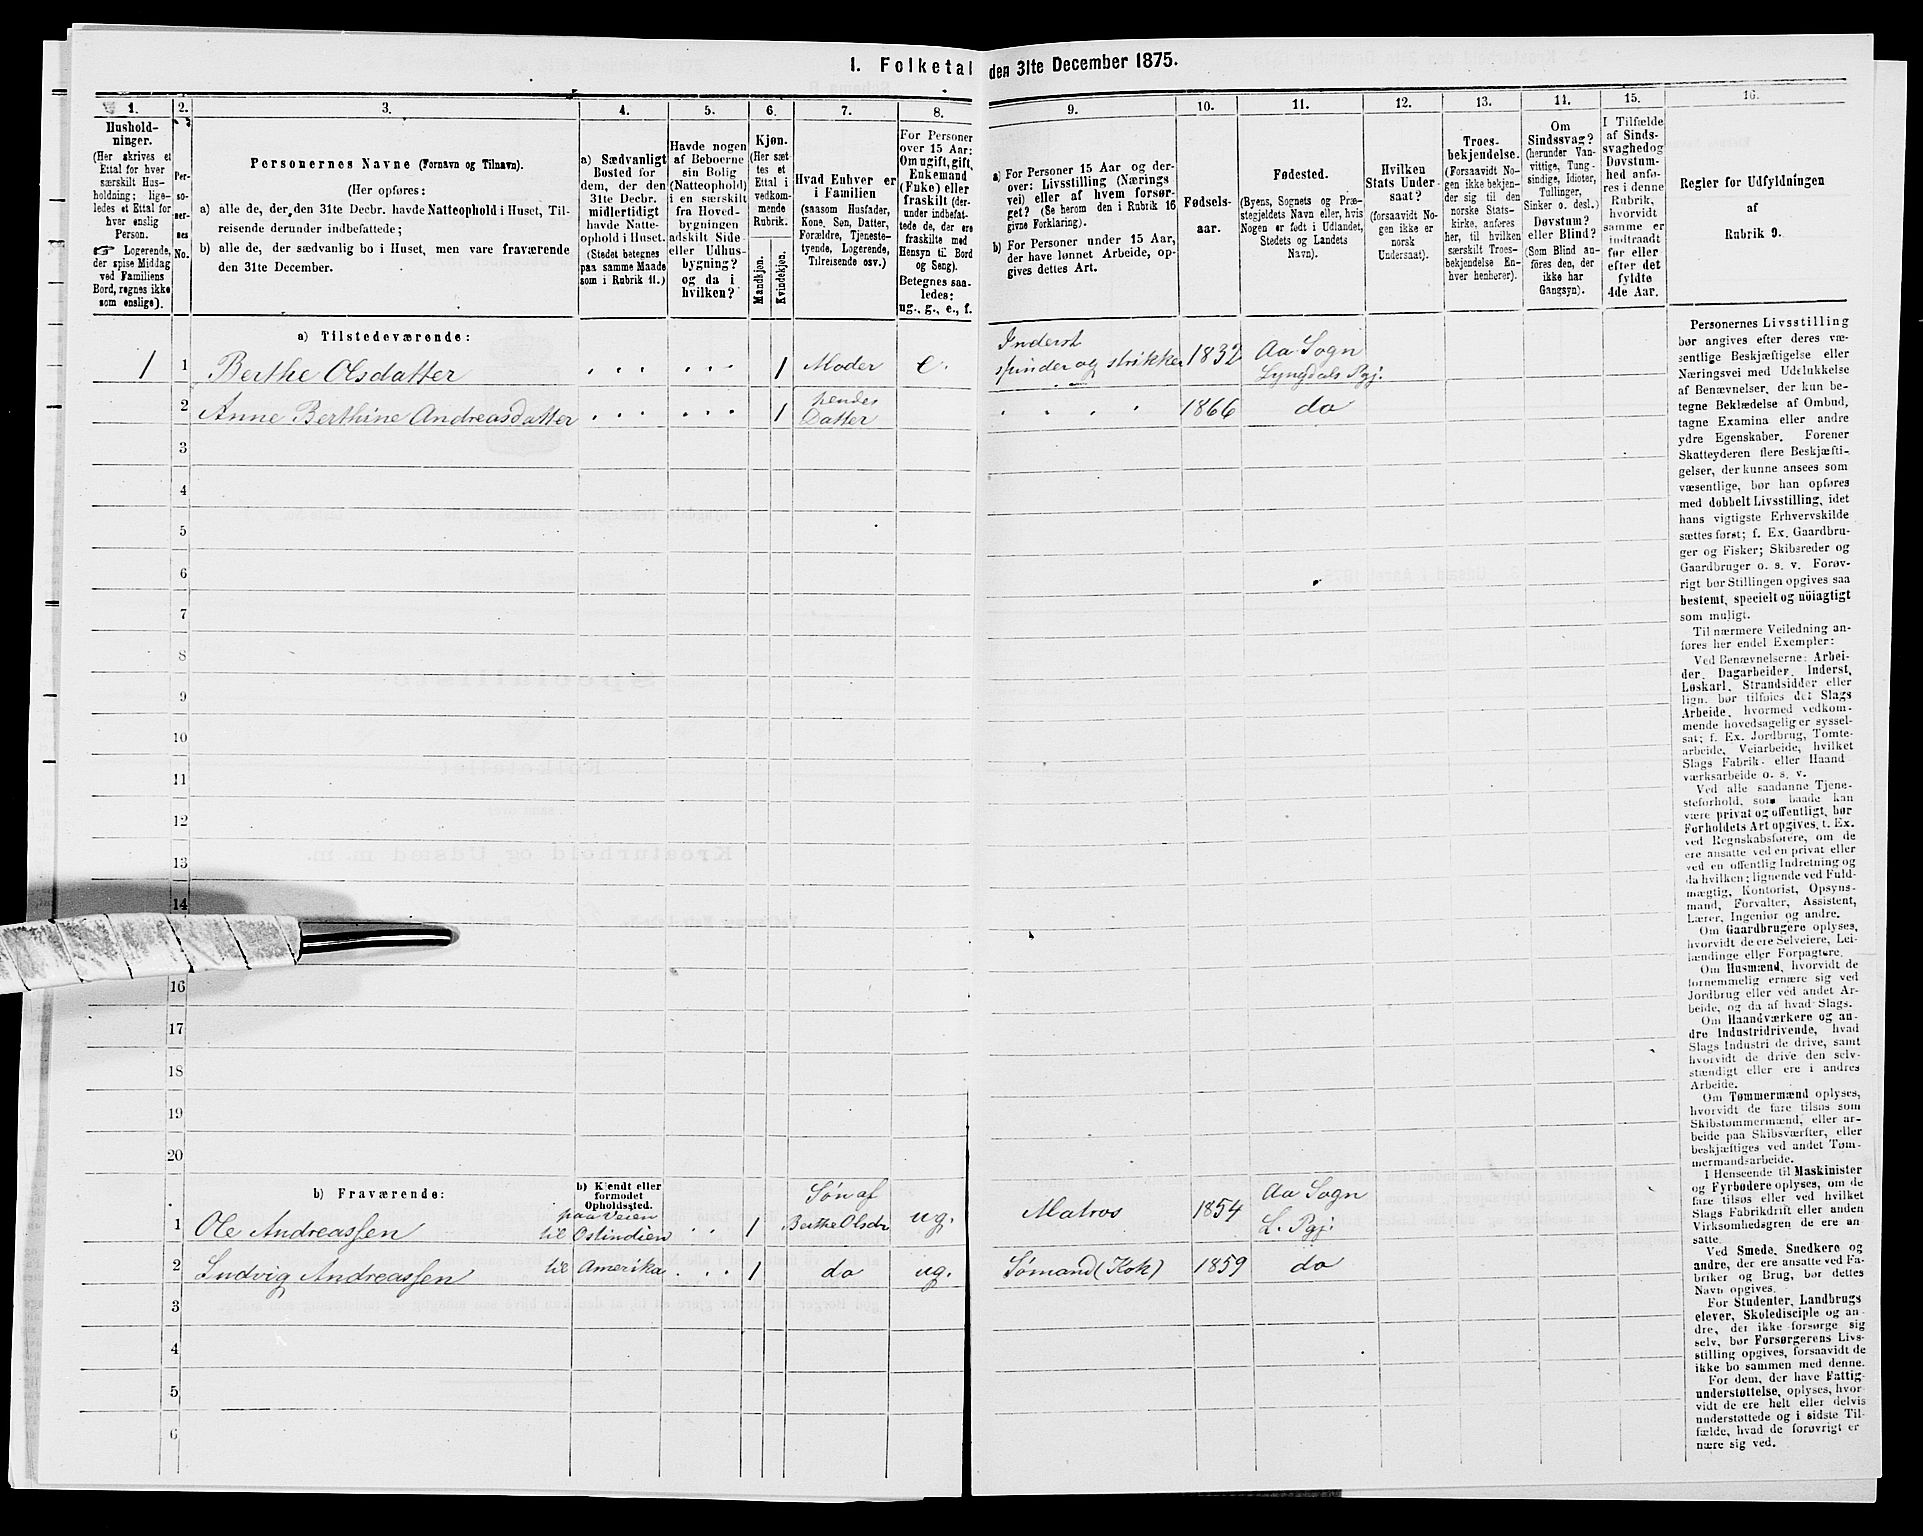 1. Folketal den 31te December 1875.
1.
Hushold-
ninger.
(Her skrives et
Ettal for hver
særskilt Hus-
holdning; lige-
ledes et Ettal for
hver enslig
Person.
☞ Logerende,
der spise Middag
ved Familiens
Bord, regnes ikke
som enslige).
2.
Per-
so-
ner-
nes
No.
3.
Personernes Navne (Fornavn og Tilnavn).
(Her opføres:
a) alle de, der den 31te Decbr. havde Natteophold i Huset, Til-
reisende derunder indbefattede;
b) alle de, der sædvanlig bo i Huset, men vare fraværende
den 31te December.
4.
a) Sædvanligt
Bosted for
dem, der den
31te Decbr.
midlertidigt
havde Natte-
ophold i Huset.
(Stedet betegnes
paa samme Maade
som i Rubrik 11.)
5.
Havde nogen
af Beboerne
sin Bolig
(Natteophold)
i en særskilt
fra Hoved-
bygningen
adskilt Side-
eller Udhus-
bygning?
og da i
hvilken?
6.
Kjøn.
(Her sæt
tes et
Ettal i
vedkom-
mende
Rubrik.
Mandkjøn.
Kvindekjøn.
7.
Hvad Enhver er
i Familien
(saasom Husfader,
Kone, Søn, Datter,
Forældre, Tjeneste-
tyende, Logerende,
Tilreisende osv.)
8.
For Personer
over 15 Aar:
Om ugift, gift,
Enkemand
(Enke) eller
fraskilt (der-
under indbefat-
tede de, der ere
fraskilte med
Hensyn til Bord
og Seng).
Betegnes saa-
ledes:
ug., g., e., f.
9.
a) For Personer 15 Aar og der-
over: Livsstilling (Nærings
vei) eller af hvem forsør-
get? (Se herom den i Rubrik 16
givne Forklaring).
b) For Personer under 15 Aar,
der have lønnet Arbeide, op-
gives dettes Art.
10.
Fødsels-
aar.
11.
Fødested.
(Byens, Sognets og Præ-
stegjeldets Navn eller, hvis
Nogen er født i Udlandet,
Stedets og Landets
Navn).
12.
Hvilken
Stats Under-
saat?
(forsaavidt No-
gen ikke er
norsk
Undersaat).
13.
Troes-
bekjendelse.
(Forsaavidt No-
gen ikke bekjen-
der sig til den
norske Stats-
kirke, anføres
her, til hvilken
særskilt Troes-
bekjendelse En-
hver henhører).
14.
Om
Sindssvag?
(herunder Van-
vittige, Tung-
sindige, Idioter,
Tullinger,
Sinker o. desl.)
Døvstum?
eller Blind?
(Som Blind an-
føres den, der
ikke har
Gangsyn).
15.
I Tilfælde
af Sinds-
svaghed og
Døvstum-
hed anfø-
res i denne
Rubrik,
hvorvidt
samme er
indtraadt
før eller
efter det
fyldte
4de Aar.
16.
Regler for Udfyldningen
af
Rubrik 9.
a) Tilstedeværende:
1 1 Berthe Olsdatter 1 Moder e. Inderst
spinder og strikker 1832 Aa Sogn
Lyngdals Pgj.
2 Anne Berthine Andreasdatter 1 hendes
Datter 1866 do
3
4
5
6
7
8
9
10
11
12
13
14
16
17
18
19
20
b) Fraværende:
b) Kjendt eller
formodet
Opholdssted.
1 Ole Andreassen paa Veien
til Ostindien 1 Søn af
Berthe Olsdr ug. Matros 1854 Aa Sogn
L. Pgj.
2 Ludvig Andreassen til Amerika 1 do ug. Sømand (Kok) 1859 do
3
4
5
6
Personernes Livsstilling
bør angives efter deres væ-
sentlige Beskjæftigelse eller
Næringsvei med Udelukkelse
af Benævnelser, der kun be-
tegne Beklædelse af Ombud,
tagne Examina eller andre
ydre Egenskaber. Forener
Skatteyderen flere Beskjæfti-
gelser, der kunne ansees som
væsentlige, bør han opføres
med dobbelt Livsstilling, idet
hans vigtigste Erhvervskilde
sættes først; f. Ex. Gaardbru-
ger og Fisker; Skibsreder og
Gaardbruger o. s. v. Forøv-
rigt bør Stillingen opgives saa
bestemt, specielt og nöiagtigt
som muligt.
Til nærmere Veiledning an-
føres her endel Exempler:
Ved Benævnelserne: Arbei-
der, Dagarbeider, Inderst,
Løskarl, Strandsidder eller
lign. bør tilføies det Slags
Arbeide, hvormed vedkom-
mende hovedsagelig er syssel-
sat; f. Ex. Jordbrug, Tomte-
arbeide, Veiarbeide, hvilket
Slags Fabrik- eller Haand
værksarbeide o. s. v.
Ved alle saadanne Tjene-
steforhold, som baade kan
være privat og offentligt, bør
Forholdets Art opgives, t. Ex.
ved Regnskabsførere, om de
ere ansatte ved en privat eller
ved en offentlig Indretning og
da hvilken; lignende ved Fuld-
mægtig, Kontorist, Opsyns-
mand, Forvalter, Assistent,
Lærer, Ingeniør og andre.
Om Gaardbrugere oplyses,
hvorvidt de ere Selveiere, Lei-
lændinge eller Forpagtere.
Om Husmænd, hvorvidt de
fornemmelig ernære sig ved
Jordbrug eller ved andet Ar-
beide, og da af hvad Slags.
Om Haandværkere og an-
dre Industridrivende, hvad
Slags Industri de drive, samt
hvorvidt de drive den selv-
stændigt eller ere i andres
Arbeide.
Om Tømmermænd oplyses,
hvorvidt de fare tilsøs som
Skibstømmermænd, eller ar-
beide paa Skibsværfter, eller
beskjæftiges ved andet Tøm-
mermandsarbeide.
I Henseende til Maskinister
og Fyrbødere oplyses, om de
fare tilsøs eller ved hvilket
Slags Fabrikdrift eller anden
Virksomhedsgren de ere an-
satte.
Ved Smede, Snedkere og
andre, der ere ansatte ved Fa-
briker og Brug, bør dettes
Navn opgives.
For Studenter, Landbrugs
elever, Skoledisciple og an-
dre, der ikke forsørge sig
selv, bør Forsørgerens Livs-
stilling opgives, forsaavidt de
ikke bo sammen med denne.
For dem, der have Fattig-
understøttelse, oplyses, hvor-
vidt de ere helt eller delvis
understøttede og i sidste Til-
fælde, hvad de forøvrigt er
nære sig ved.